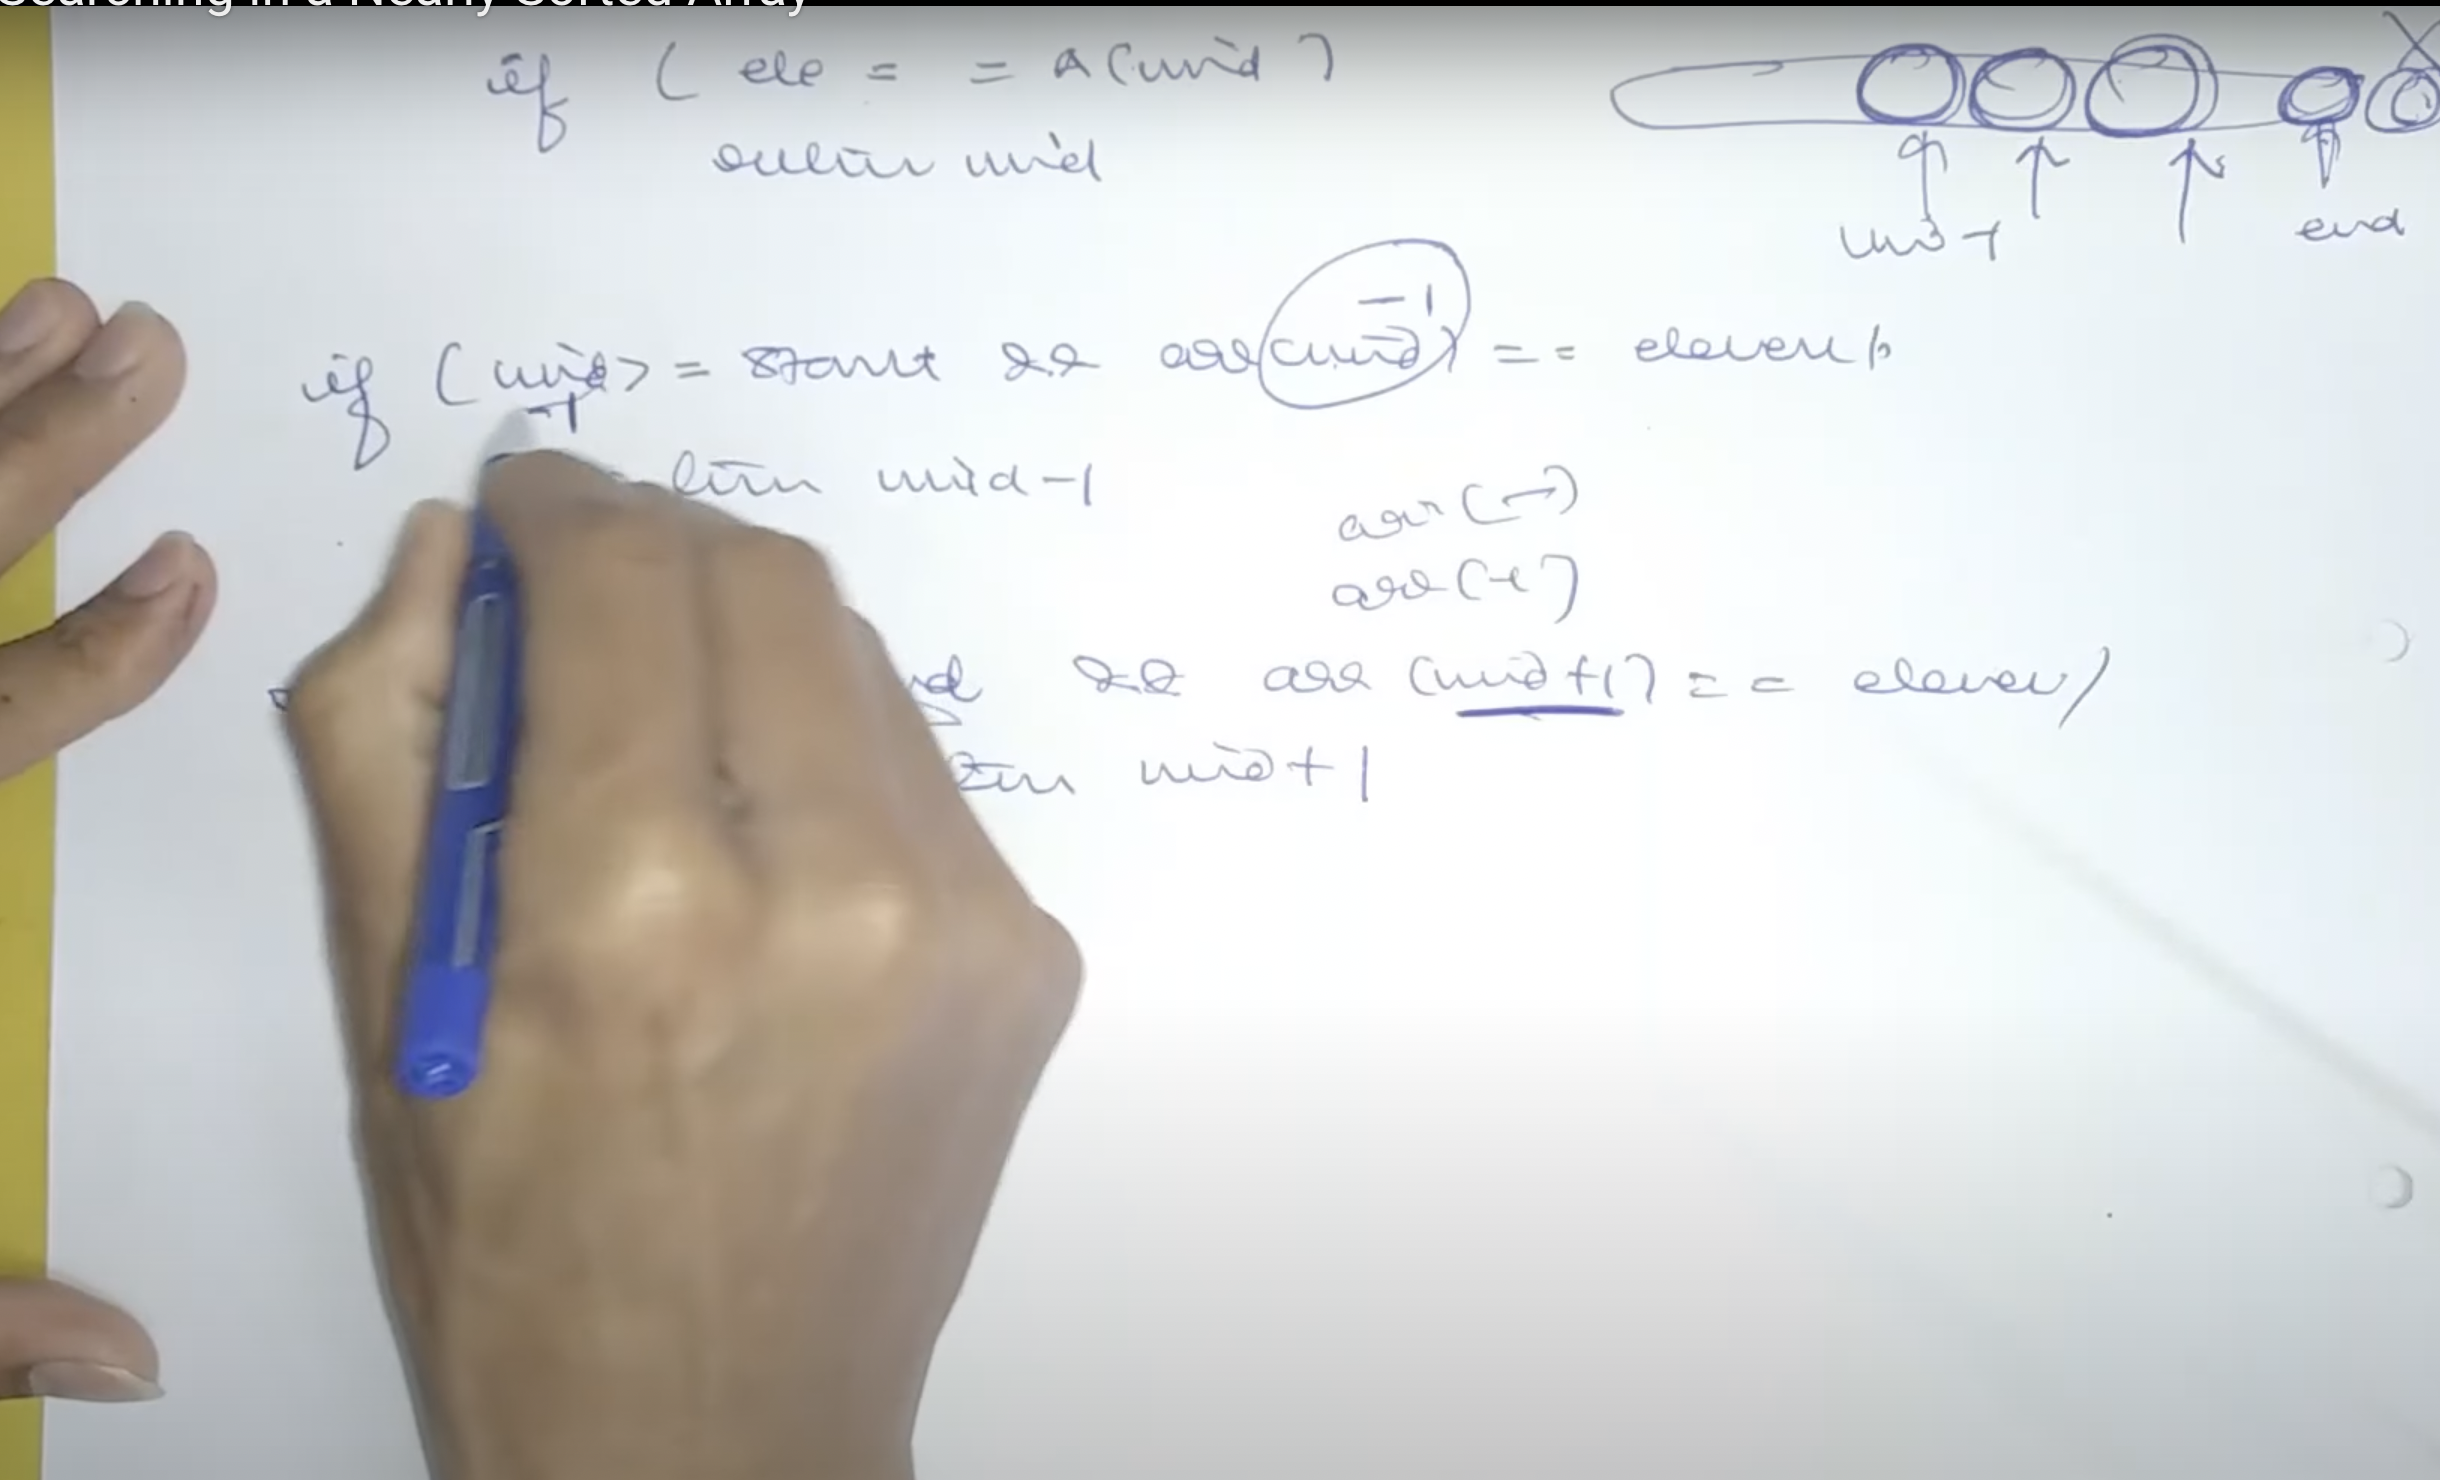 Searching in a Nearly Sorted Array
if ( ele = = A(mid)
return mid
mid-1 end
if (mid-1 >= start && arr(mid-1) == element
mid-1
arr(
arr(
&& arr (mid+1) == element
mid+1